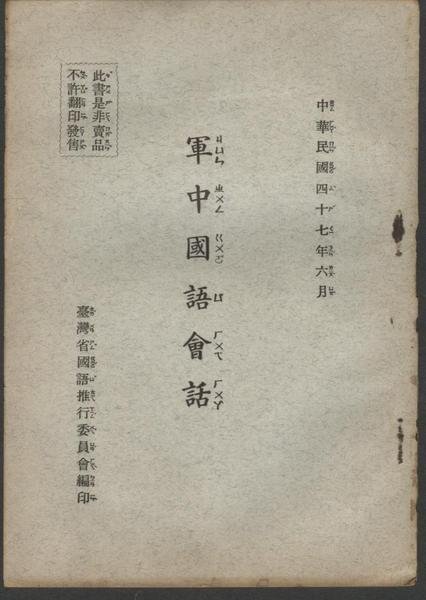 中華民國四十七年六月
軍中國語會話
ㄐㄩㄣ ㄓㄨㄥ ㄍㄨㄛ ㄩ ㄏㄨㄟ ㄏㄨㄚ
此書是非賣品
不許翻印發售
臺灣省國語推行委員會編印